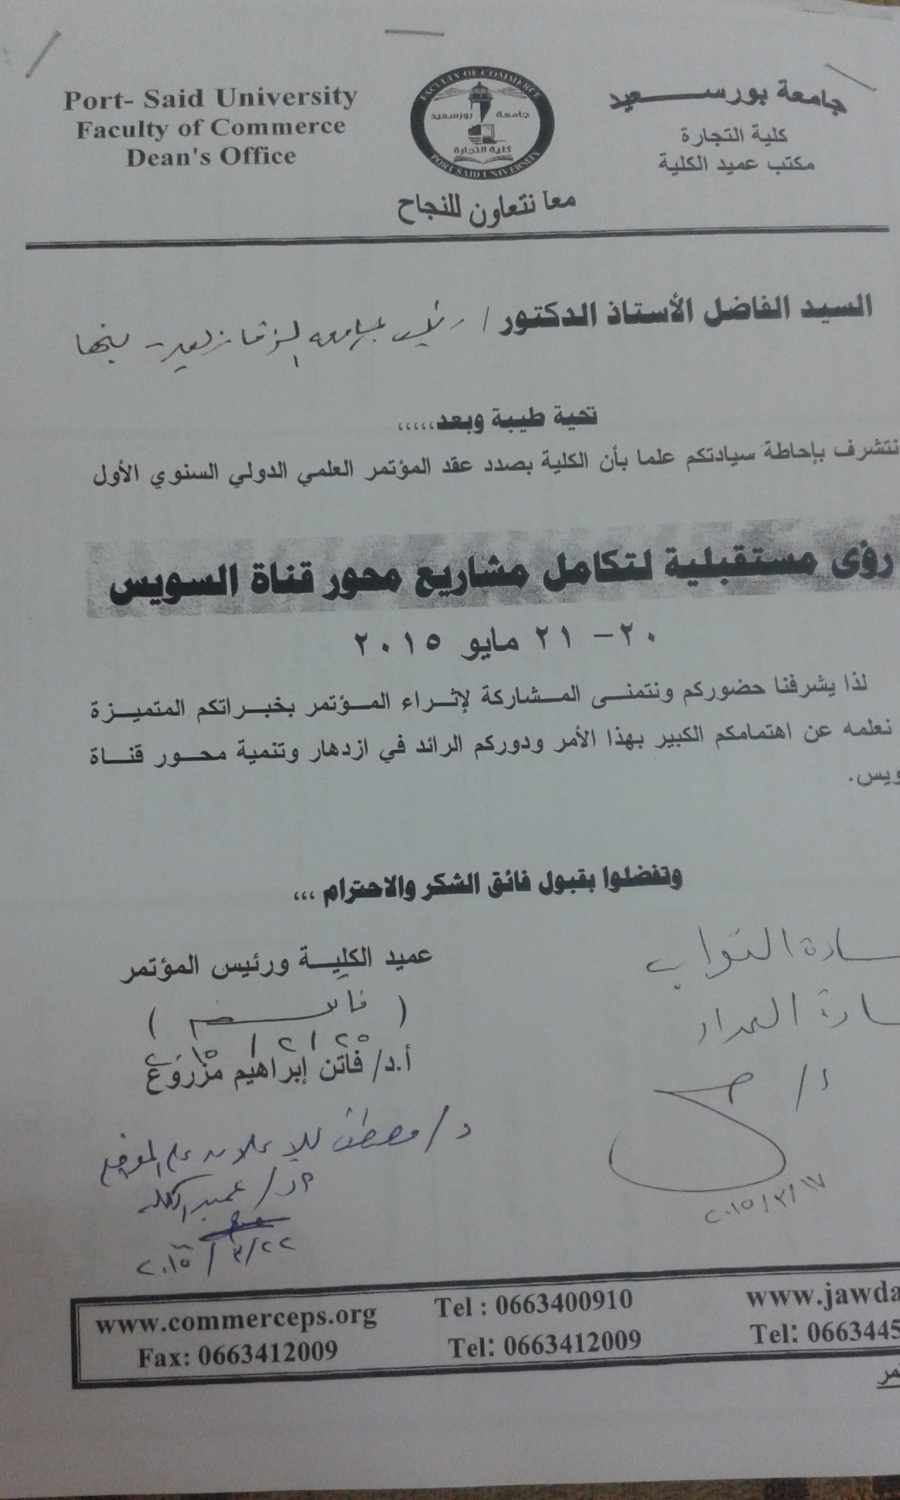 Port- Said University
Faculty of Commerce
Dean's Office
FACULTY OF COMMERCE
جامعة بورسعيد
كلية التجارة
PORT SAID UNIVERSITY
جامعة بورســـــعيد
كلية التجارة
مكتب عميد الكلية
معا نتعاون للنجاح
السيد الفاضل الأستاذ الدكتور / رئيس جامعة الزقازيق - بنها
تحية طيبة وبعد،،،،،
نتشرف بإحاطة سيادتكم علما بأن الكلية بصدد عقد المؤتمر العلمي الدولي السنوي الأول
رؤى مستقبلية لتكامل مشاريع محور قناة السويس
٢٠- ٢١ مايو ٢٠١٥
لذا يشرفنا حضوركم ونتمنى المشاركة لإثراء المؤتمر بخبراتكم المتميزة
نعلمه عن اهتمامكم الكبير بهذا الأمر ودوركم الرائد في ازدهار وتنمية محور قناة
ويس.
وتفضلوا بقبول فائق الشكر والاحترام ،،،
عميد الكلية ورئيس المؤتمر
أ.د/ فاتن إبراهيم مزروع
السادة النواب
السادة العمداء
د/
٢٠١٥/٣/١٧
د/ مصطفى للإعلان على الموقع
عميد الكلية
٢٠١٥/٣/٢٢
www.commerceps.org
Tel : 0663400910
www.jawda
Fax: 0663412009
Tel: 0663412009
Tel: 0663445